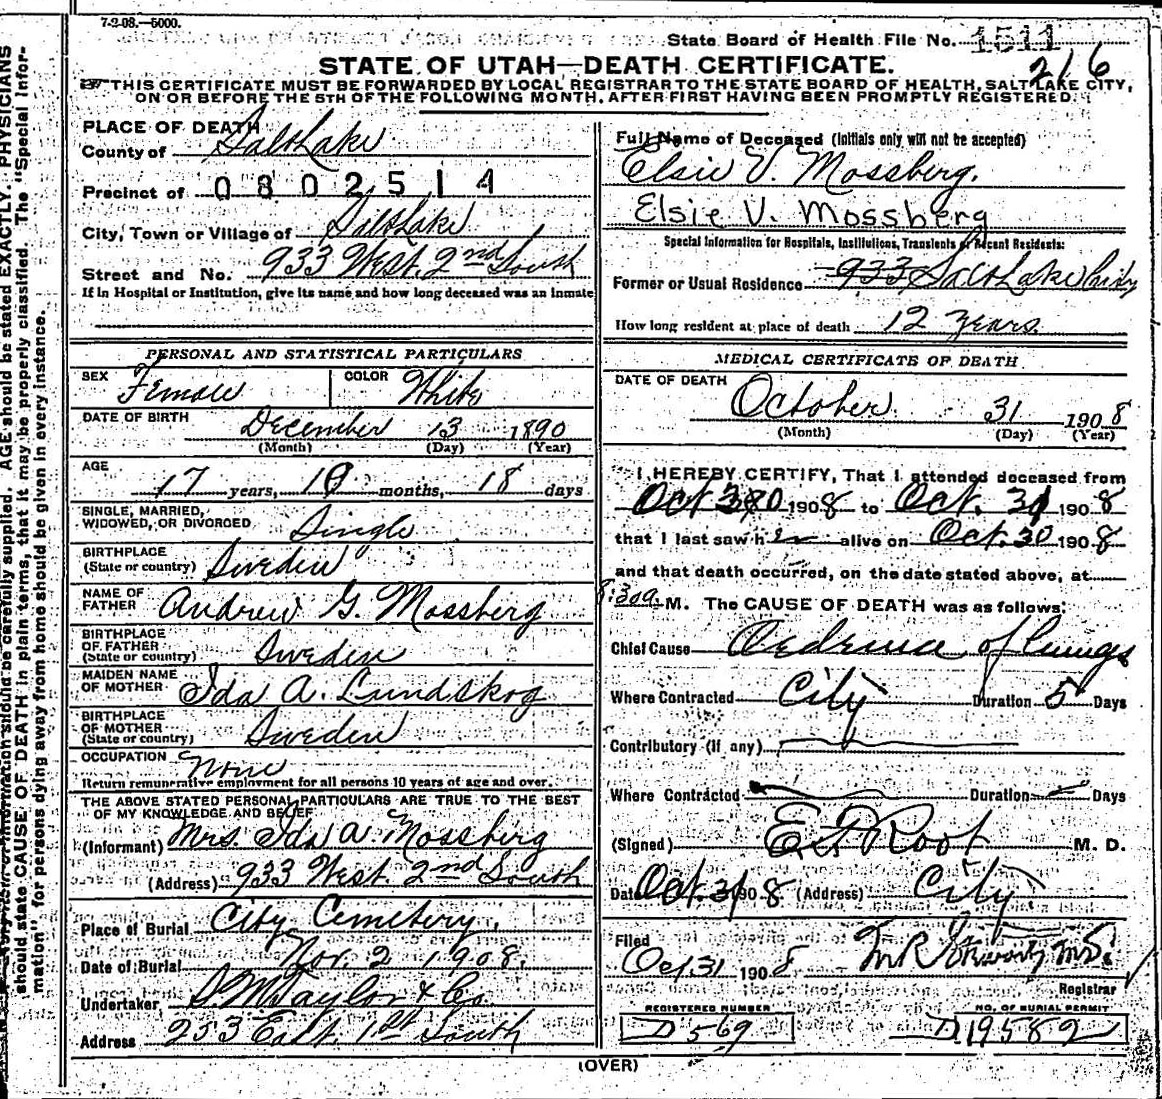 7-2-08.—5000.
State Board of Health File No. 1511
216
STATE OF UTAH—DEATH CERTIFICATE.
THIS CERTIFICATE MUST BE FORWARDED BY LOCAL REGISTRAR TO THE STATE BOARD OF HEALTH, SALT LAKE CITY,
ON OR BEFORE THE 5TH OF THE FOLLOWING MONTH, AFTER FIRST HAVING BEEN PROMPTLY REGISTERED.
PLACE OF DEATH
County of Salt Lake
Precinct of 0802514
City, Town or Village of Salt Lake
Street and No. 933 West. 2nd South
If in Hospital or Institution, give its name and how long deceased was an inmate
PERSONAL AND STATISTICAL PARTICULARS
SEX Female COLOR White
DATE OF BIRTH December 13 1890
(Month) (Day) (Year)
AGE 17 years, 10 months, 18 days
SINGLE, MARRIED,
WIDOWED, OR DIVORCED Single
BIRTHPLACE
(State or country) Sweden
NAME OF
FATHER Andrew G. Mossberg
BIRTHPLACE
OF FATHER
(State or country) Sweden
MAIDEN NAME
OF MOTHER Ida A. Lundskog
BIRTHPLACE
OF MOTHER
(State or country) Sweden
OCCUPATION None
Return remunerative employment for all persons 10 years of age and over.
THE ABOVE STATED PERSONAL PARTICULARS ARE TRUE TO THE BEST
OF MY KNOWLEDGE AND BELIEF
(Informant) Mrs. Ida A. Mossberg
(Address) 933 West. 2nd South
Place of Burial City Cemetery.
Date of Burial Nov. 2 1908.
Undertaker S. M. Taylor & Co
Address 253 East. 1st South
Full Name of Deceased (Initials only will not be accepted)
Elsie V. Mossberg.
Elsie V. Mossberg
Special Information for Hospitals, Institutions, Transients or Recent Residents:
Former or Usual Residence 933 Salt Lake City
How long resident at place of death 12 years
MEDICAL CERTIFICATE OF DEATH
DATE OF DEATH
October 31 1908
(Month) (Day) (Year)
I HEREBY CERTIFY, That I attended deceased from
Oct 30 1908 to Oct. 31 1908
that I last saw her alive on Oct. 30 1908
and that death occurred, on the date stated above, at
8:30a M. The CAUSE OF DEATH was as follows:
Chief Cause Oedema of lungs
Where Contracted City Duration 5 Days
Contributory (if any)
Where Contracted Duration Days
(Signed) Root M. D.
Date Oct. 31 1908 (Address) City
Filed
Oct 31 1908 M.D.
Registrar
REGISTERED NUMBER NO. OF BURIAL PERMIT
D 569 D19582
(OVER)
should be carefully supplied. AGE should be stated EXACTLY. PHYSICIANS
should state CAUSE OF DEATH in plain terms, that it may be properly classified. The "Special Infor-
mation" for persons dying away from home should be given in every instance.